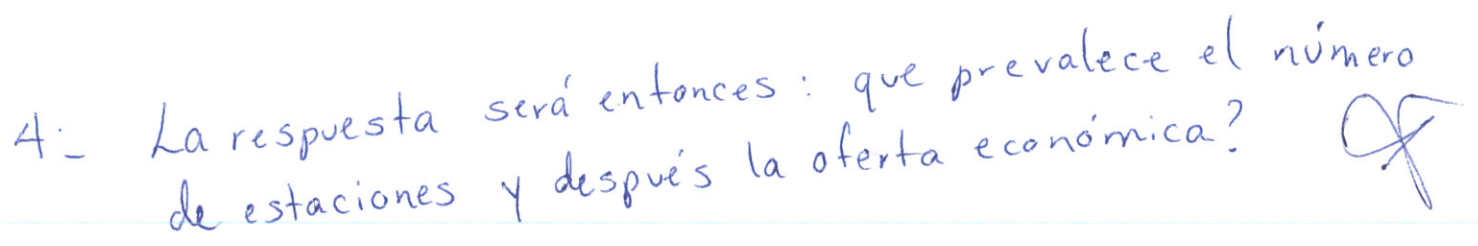 4.- La respuesta será entonces: que prevalece el número
de estaciones y después la oferta económica?